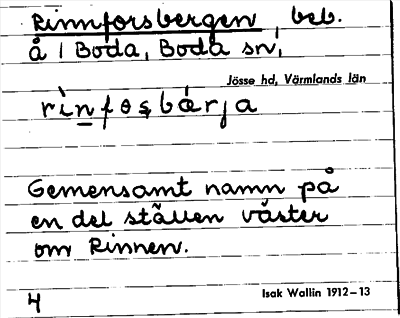 Rinnforsbergen, beb.
å / Boda, Boda sn,
Jösse hd, Värmlands län
rìnfosbárja
Gemensamt namn på
en del ställen väster
om Rinnen.
4
Isak Wallin 1912–13